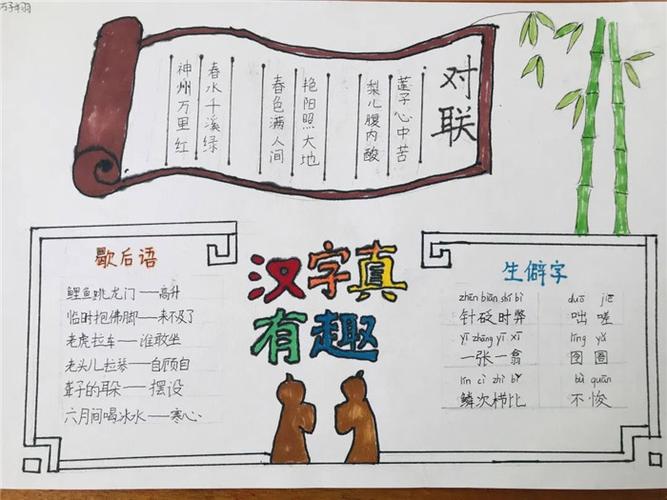 对联
莲子心中苦
梨儿腹内酸
艳阳照大地
春色满人间
春水千溪绿
神州万里红
汉字真
有趣
歇后语
鲤鱼跳龙门——高升
临时抱佛脚——来不及了
老虎拉车——谁敢坐
老头儿拉琴——自顾自
聋子的耳朵——摆设
六月间喝冰水——寒心
生僻字
zhēn biān shí bì duō jiē
针砭时弊 咄嗟
yī zhāng yī xī líng yǔ
一张一翕 囹圄
lín cì zhì bǐ bù quān
鳞次栉比 不悛